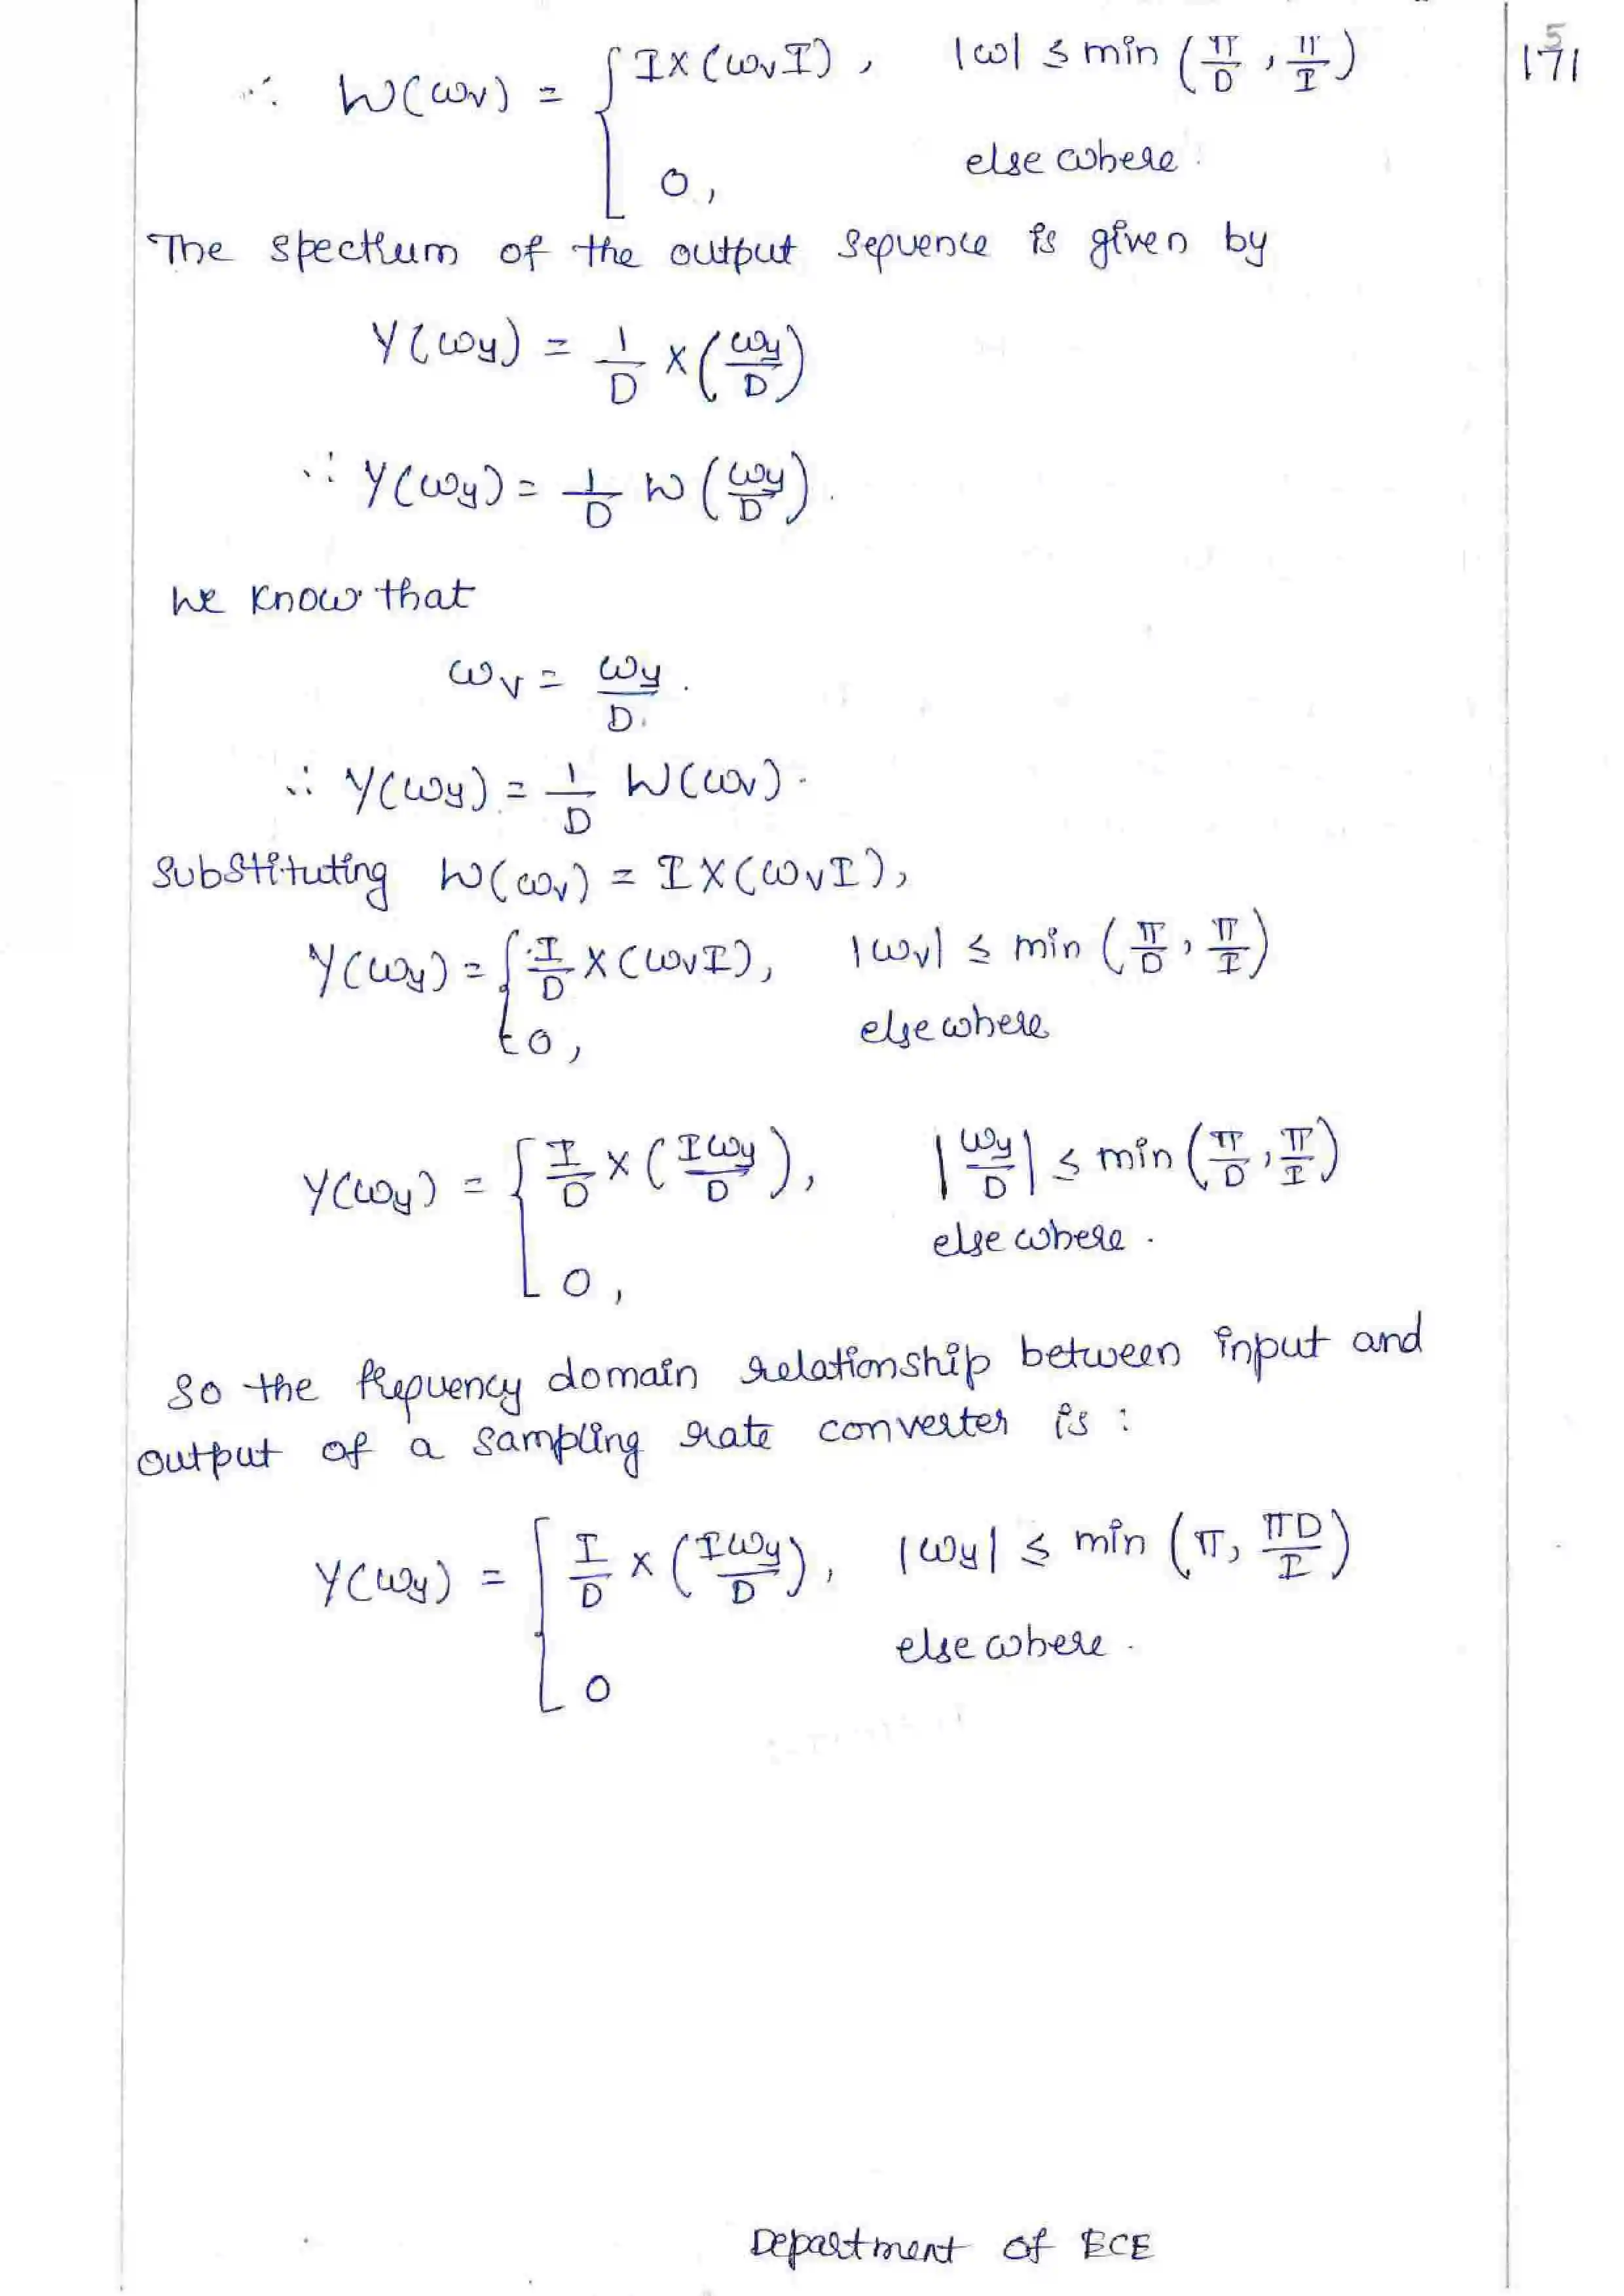 ∴ W(ωv) = { I X(ωvI), |ω| ≤ min (π/D, π/I)
0, elsewhere.
171
5
The spectrum of the output sequence is given by
Y(ωy) = 1/D X(ωy/D)
∴ Y(ωy) = 1/D W(ωy/D).
We know that
ωv = ωy/D.
∴ Y(ωy) = 1/D W(ωv).
Substituting W(ωv) = I X(ωvI),
Y(ωy) = { I/D X(ωvI), |ωv| ≤ min (π/D, π/I)
0, elsewhere
Y(ωy) = { I/D X(Iωy/D), |ωy/D| ≤ min (π/D, π/I)
0, elsewhere.
So the frequency domain relationship between input and
output of a sampling rate converter is :
Y(ωy) = { I/D X(Iωy/D), |ωy| ≤ min (π, πD/I)
0 elsewhere.
Department of ECE